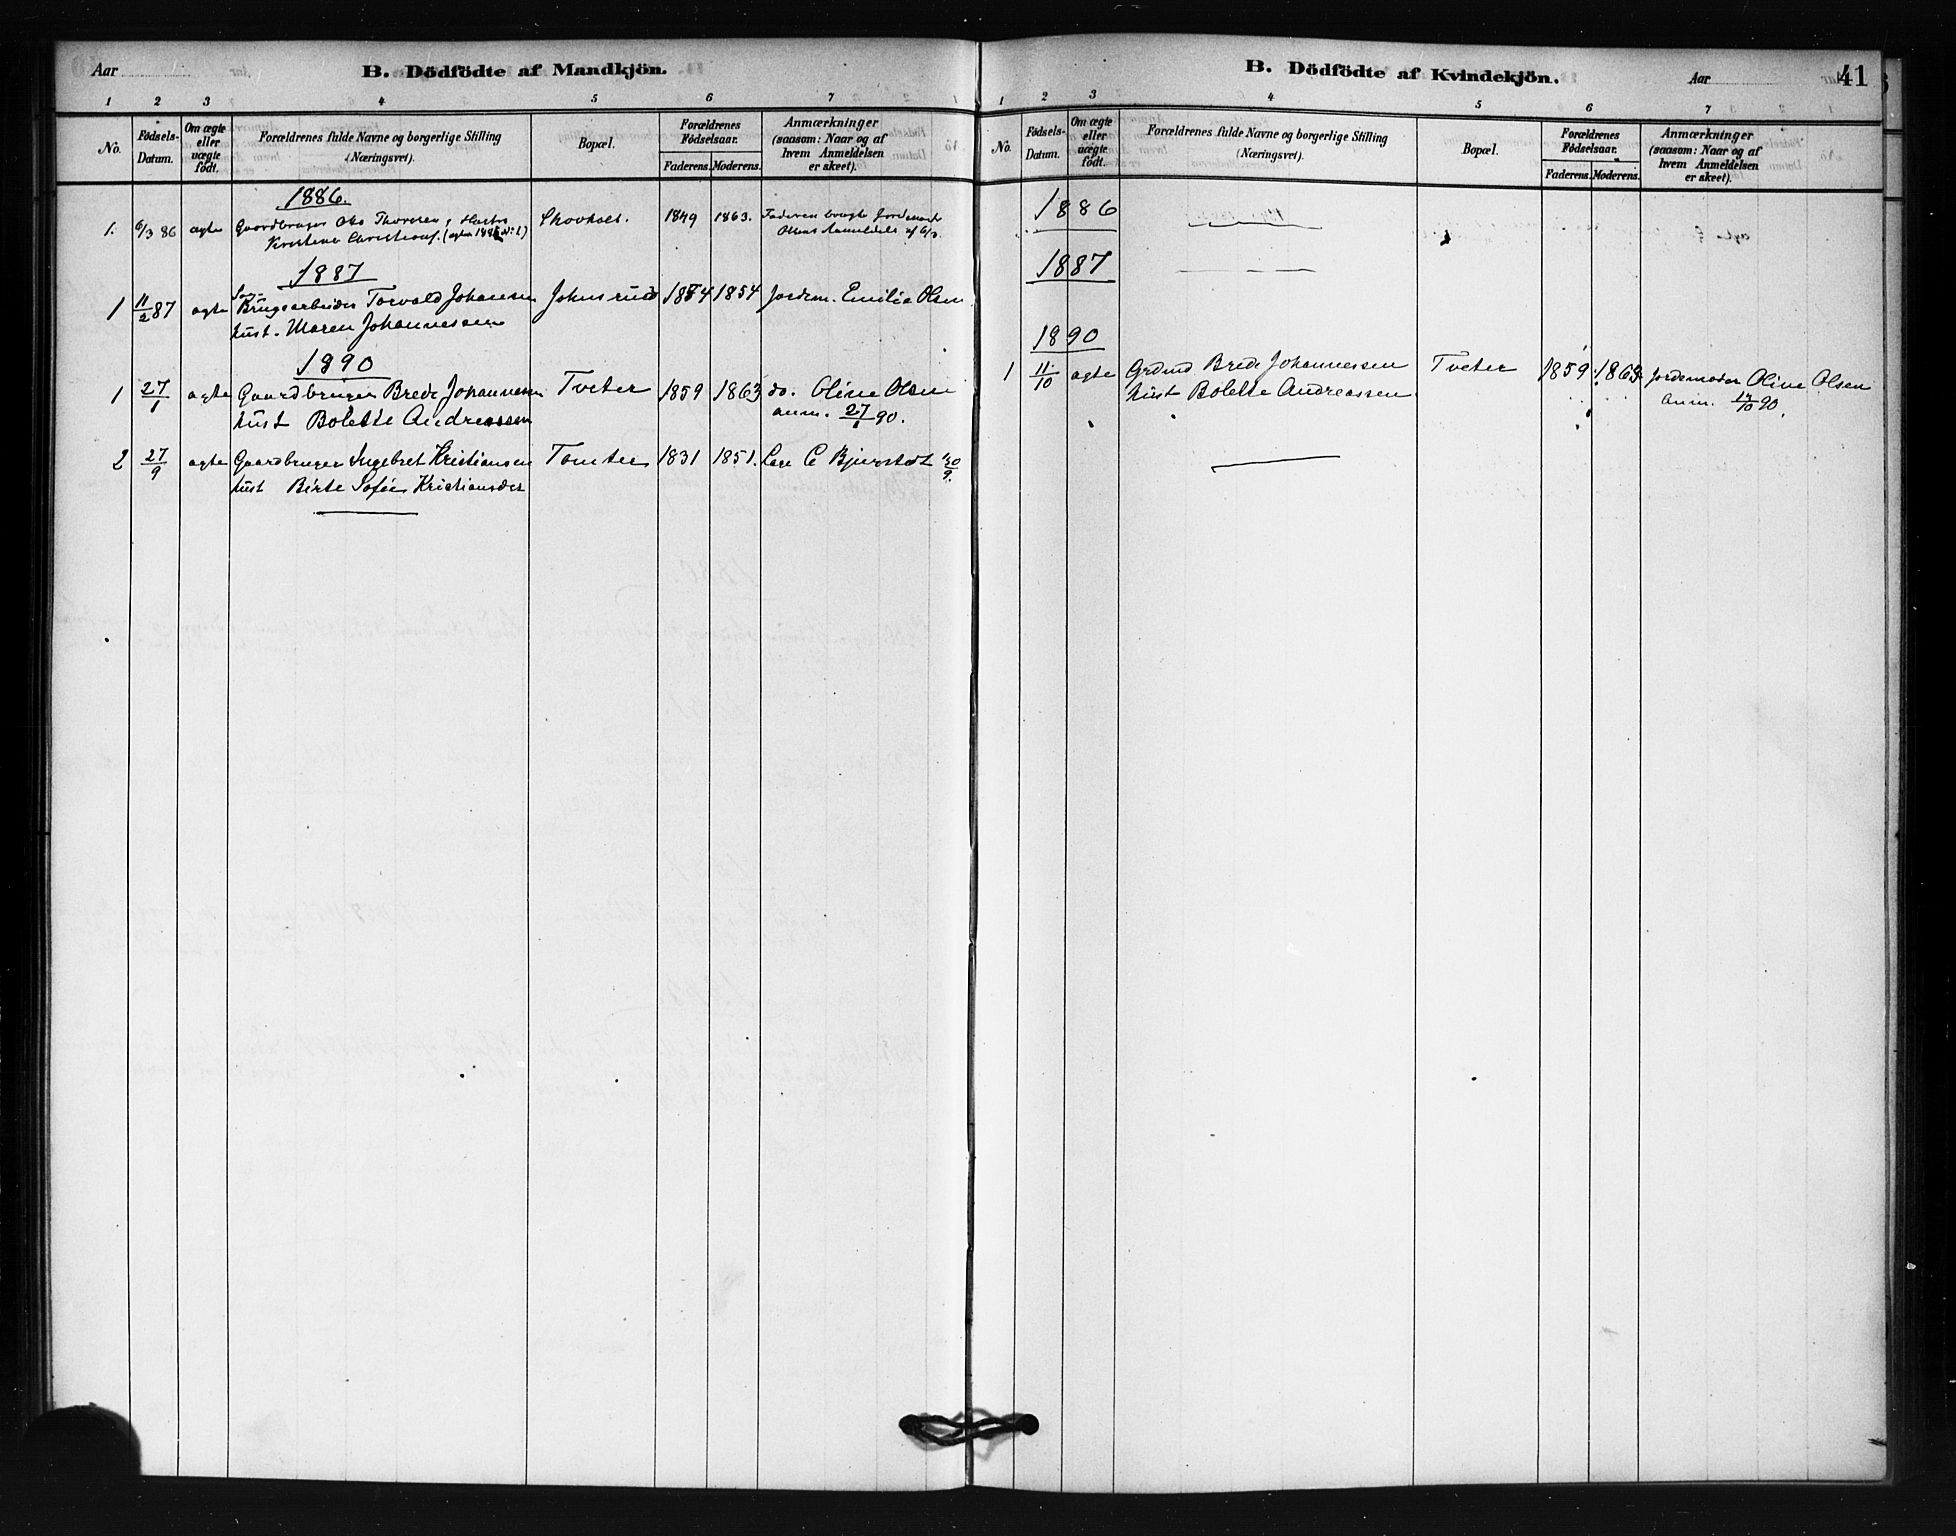 Aar
B. Dödfödte af Mandkjön.
1 2 3 4 5 6 7
No.
Födsels-
Datum.
Om ægte
eller
uægte
födt.
Forældrenes fulde Navne og borgerlige Stilling
(Næringsvei).
Bopæl.
Forældrenes
Födselsaar.
Faderens. Moderens.
Anmærkninger
(saasom: Naar og af
hvem Anmeldelsen
er skeet).
1886.
1. 6/3 86 ægte Gaardbruger Thoresen, Hustru Skovholt. 1849 1863. Faderen
Kristine
1887
1 11/2 87 ægte Brugsarbeider Torvald Johansen Johnsrud 1854 1854 Jordem. Emilie Olsen
hust. Maren Johannessen
1890
1 27/1 ægte Gaardbruger Brede Johannessen Tveter 1859 1863 do. Oline Olsen
hust Bolette Andreassen anm. 27/1 90.
2 27/9 ægte Gaardbruger Ingebret Kristiansen Tomter 1831 1851. Læge C Bjerstedt 30/9
hust Birte Sofie Kristiansdtr
B. Dödfödte af Kvindekjön.
Aar
41
1 2 3 4 5 6 7
No.
Födsels-
Datum.
Om ægte
eller
uægte
födt.
Forældrenes fulde Navne og borgerlige Stilling
(Næringsvei).
Bopæl.
Forældrenes
Födselsaar.
Faderens. Moderens.
Anmærkninger
(saasom: Naar og af
hvem Anmeldelsen
er skeet).
1886
1887
1890
1 11/10 ægte Grdmd Brede Johannessen Tveter 1859 1863 Jordemoder Oline Olsen
hust Bolette Andreassen anm. 90.